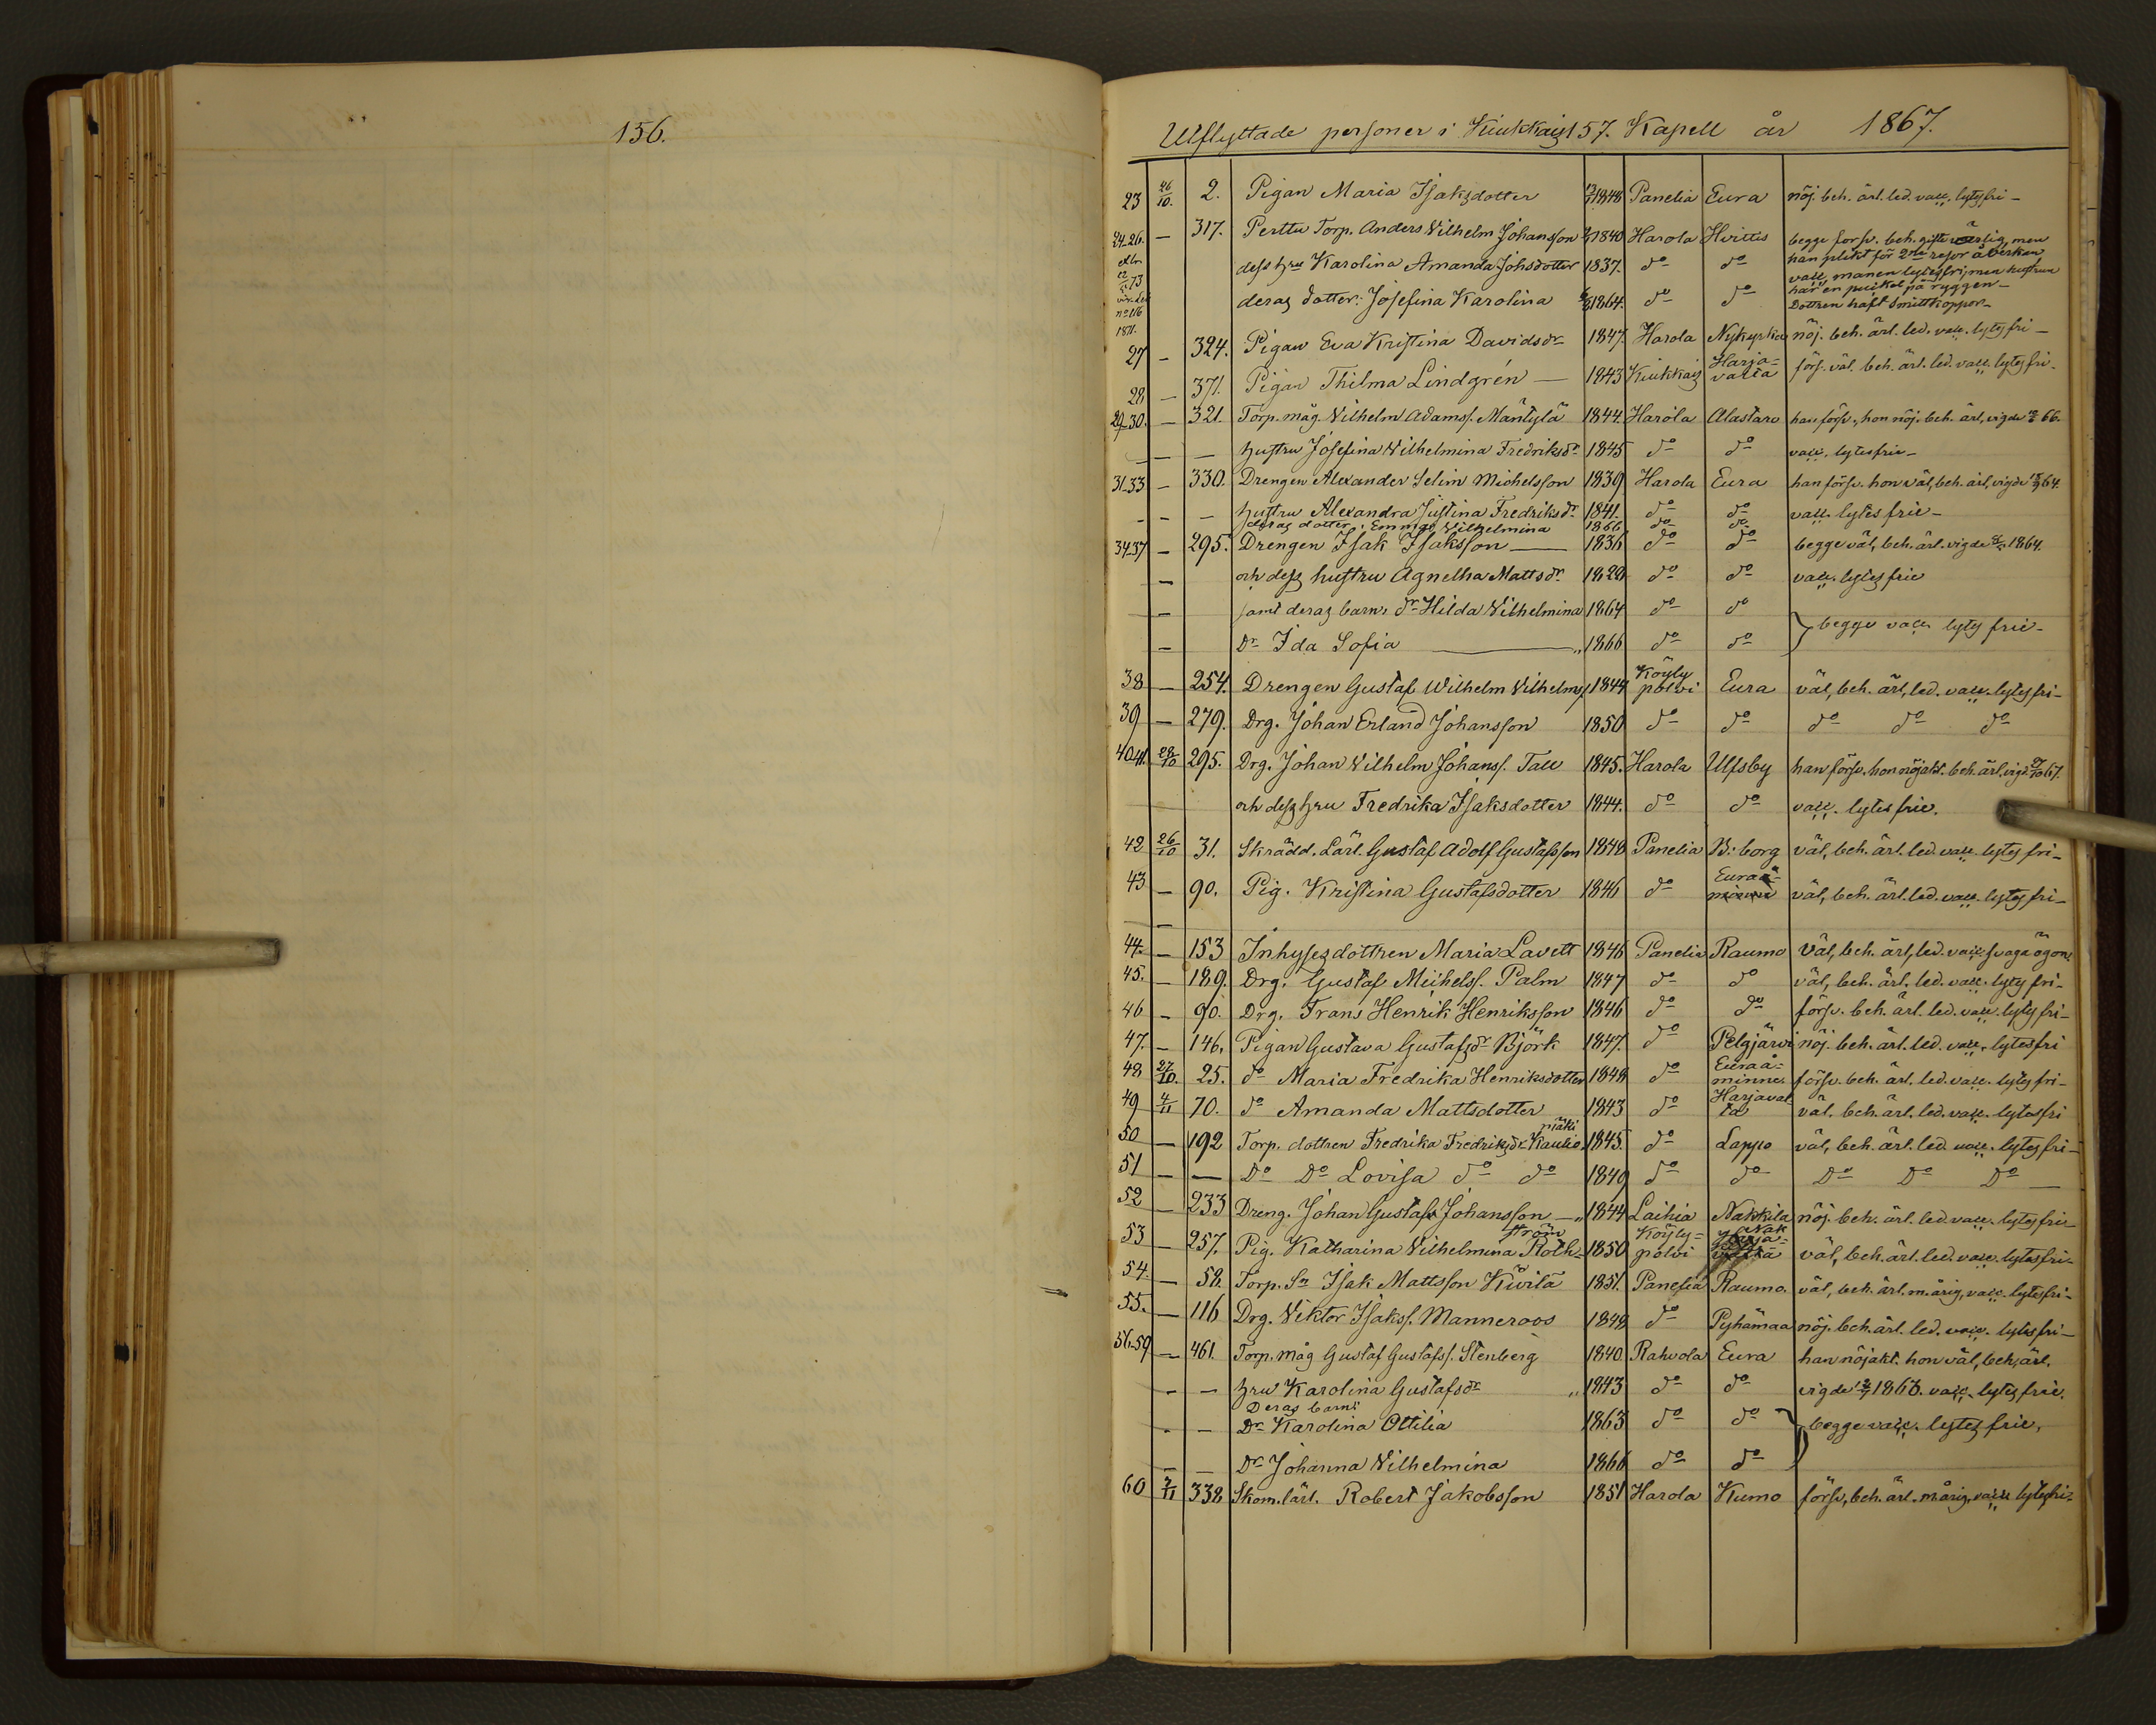 156.
Utflyttade personer i Kiukkais 157. Kapell år 1867.
23 26/10. 2. Pigan Maria Isaksdotter 1848 Panelia Eura nöj. beh. ärl. led. vacc. lytesfri -
24-26. — 317. Perttu Torp. Anders Vilhelm Johansson 1840 Harola Hvittis begge försv. beh. gifte ärlig, men
han plikt för 2dra resor åverkan
dess hru Karolina Amanda Johsdotter 1837. do do vacc. manen lytesfri, men hustrun
har en puckel på ryggen -
deras dotter: Josefina Karolina 1864. do do Dottren haft Smittkoppor -
1871.
27 — 324. Pigan Eva Kristina Davidsdr 1847. Harola Nykyrka nöj. beh. ärl. led. vacc. lytesfri -
28 — 371. Pigan Thilma Lindgrén — 1843 Kiukkais Harja-valta förs. väl. beh. ärl. led. vacc. lytesfri.
29-30. — 321. Torp. måg. Vilhelm Adamss. Mäntylä 1844. Harola Alastaro han försv., hon nöj. beh. ärl, vigde 66.
— — hustru Josefina Vilhelmina Fredriksdr 1845 do do vacc. lytesfrie -
31-33 — 330. Drengen Alexander Selim Michelsson 1839 Harola Eura han försv. hon väl, beh. ärl, vigde 64.
- - — hustru Alexandra Justina Fredriksdr 1841. do do vacc. lytesfrie -
deras dotter: Emma Wilhelmina 1866 do do
34-37 — 295. Drengen Isak Isaksson — 1836 do do begge väl, beh. ärl. vigde 1864.
— och dess hustru Agnetha Mattsdr 1829 do do vacc. lytesfrie
— samt deras barn: dr Hilda Vilhelmina 1864 do do
begge vacc. lytesfrie -
— Dr Ida Sofia — " 1866 do do
38 — 254. Drengen Gustaf Wilhelm Vilhelmss 1844 Köylypolvi Eura väl, beh. ärl, led. vacc. lytesfri -
39 — 279. Drg. Johan Erland Johansson 1850 do do do do do
40-41. 28/10 295. Drg. Johan Vilhelm Johanss. Tall 1845. Harola Ulfsby han försv. hon nöjakt. beh. ärl, vigd. 67.
och dess hru Fredrika Isaksdotter 1844. do do vacc. lytesfrie.
42 26/10 31. Skrädd. Lärl. Gustaf Adolf Gustafsson 1848 Panelia B:borg väl, beh. ärl. led. vacc. lytesfri -
43 — 90. Pig. Kristina Gustafsdotter 1846 do Euraå-minne väl, beh. ärl. led. vacc. lytesfri -
—
44. — 153 Inhysesdottren Maria Lavett 1846 Panelia Raumo Väl, beh. ärl, led. vacc. svaga ögon.
45. — 189. Drg. Gustaf Michelss. Palm 1847 do do väl, beh. ärl. led. vacc. lytesfri -
46 — 90. Drg. Frans Henrik Henriksson 1846 do do försv. beh. ärl. led. vacc. lytesfri -
47. — 146. Pigan Gustava Gustafsdr Björk 1847. do Pelgjärvi nöj. beh. ärl. led. vacc. lytesfri
48 27/10. 25. do Maria Fredrika Henriksdotter 1848 do Euraå-minne. försv. beh. ärl. led. vacc. lytesfri -
49 4/11 70. do Amanda Mattsdotter 1843 do Harjavalta väl, beh. ärl. led. vacc. lytesfri
50 — 192 Torp. dottren Fredrika Fredriksdr Kauliopiäki 1845. do Lappo väl, beh. ärl. led. vacc. lytesfri -
51 — — Do Do Lovisa do do 1849 do do Do Do Do —
52 — 233 Dreng. Johan Gustaf Johansson — " 1844 Laihia Nakkila nöj. beh. ärl. led. vacc. lytesfri -
53 — 257. Pig. Katharina Vilhelmina Rothström 1850 Köyly-polvi Nak väl, beh. ärl. led. vacc. lytesfri -
54. — 58. Torp. Sn Isak Mattsson Kivilä 1851. Panelia Raumo. väl, beh. ärl. m. årig, vacc. lytesfri -
55. — 116 Drg. Viktor Isakss. Manneroos 1848 do Pyhämaa nöj. beh. ärl. led. vacc. lytesfri -
56-59 — 461. Torp. måg Gustaf Gustafss. Stenberg 1840. Rahvola Eura han nöjakt. hon väl, beh, ärl.
- — hru Karolina Gustafsdr " 1843 do do vigde 1863. vacc. lytesfrie.
Deras barn:
- — Dr Karolina Ottilia 1863 do do begge vacc. lytesfrie.
— — Dr Johanna Vilhelmina 1866 do do
60 7/11 338 Skom. lärl. Robert Jakobsson 1851 Harola Kumo försv, beh. ärl. m. årig, vacc. lytesfri -